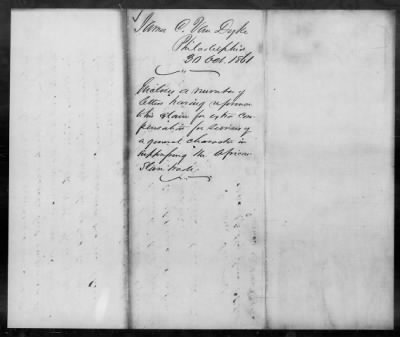 James C. Van Dyke
Philadelphia
30 Oct. 1861
Encloses a number of
letters having reference to
his claim for extra com-
pensation for services of
a general character in
suppressing the African
Slave trade.